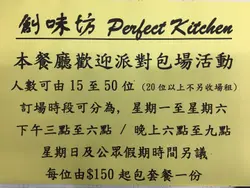 創味坊 Perfect Kitchen
本餐廳歡迎派對包場活動
人數可由 15 至 50 位（20位以上不另收場租）
訂場時段可分為，星期一至星期六
下午三點至六點 / 晚上六點至九點
星期日及公眾假期時間另議
每位由$150 起包套餐一份